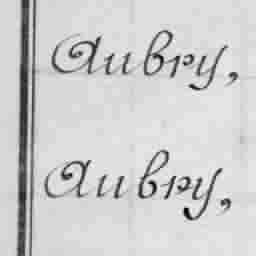 Aubry,
Aubry,